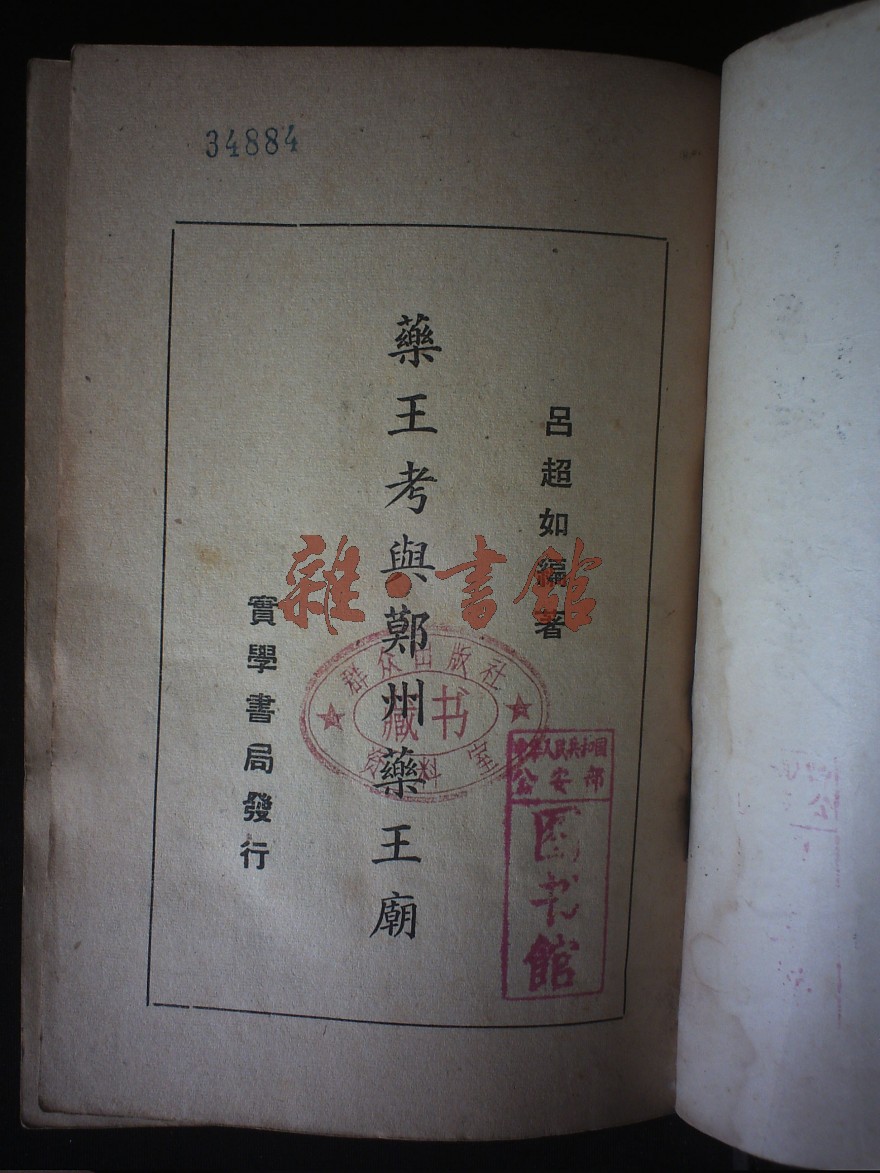 34884
呂超如編著
藥王考與鄭州藥王廟
實學書局發行
雜·書館
群众出版社
藏书
资料室
中华人民共和国
公安部
图书馆